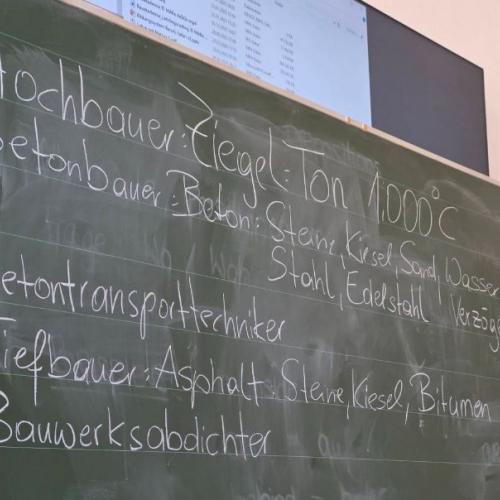 Hochbauer: Ziegel: Ton 1.000°C
Betonbauer: Beton: Steine, Kiesel, Sand, Wasser
Stahl, Edelstahl Verzög
Betontransporttechniker
Tiefbauer: Asphalt: Steine, Kiesel, Bitumen
Bauwerksabdichter